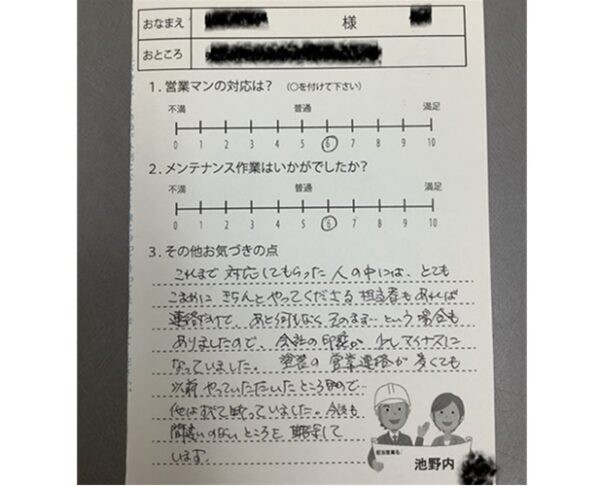 おなまえ 様
おところ
1. 営業マンの対応は? (○を付けて下さい)
不満 普通 満足
0 1 2 3 4 5 6 7 8 9 10
2. メンテナンス作業はいかがでしたか?
不満 普通 満足
0 1 2 3 4 5 6 7 8 9 10
3. その他お気づきの点
これまで対応してもらった人の中には、とても
こまめに きちんとやってくださる担当者もあれば
連絡だけで、あと何もなく そのまま…という場合も
ありましたので、会社の印象が 少しマイナスに
なっていました。 塗装の営業連絡が多くても
以前 やっていただいたところ
他はすべて断っていました。今後も
間違いのないところを 期待して
います。
担当営業名:
池野内